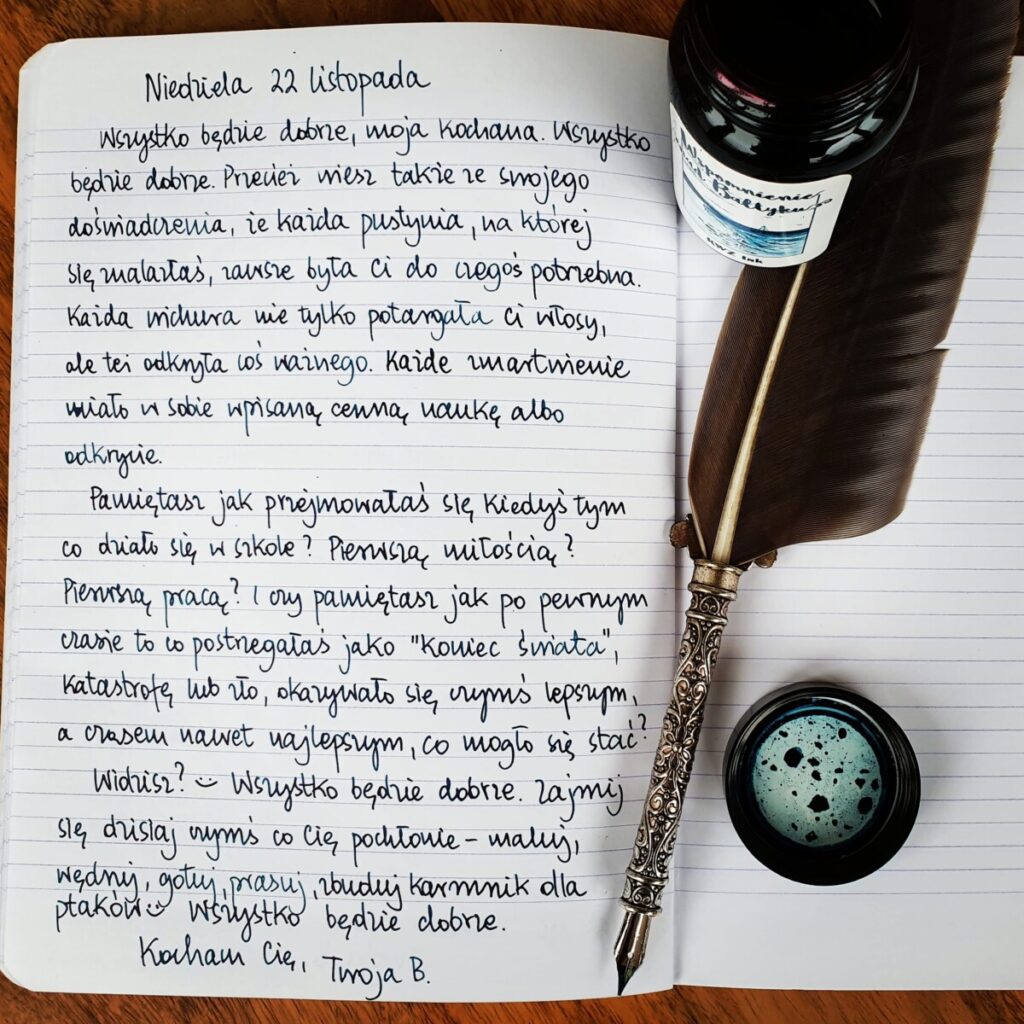 Niedziela 22 listopada
Wszystko będzie dobrze, moja Kochana. Wszystko
będzie dobrze. Przecież wiesz także ze swojego
doświadczenia, że każda pustynia, na której
się znalazłaś, zawsze była Ci do czegoś potrzebna.
Każda wichura nie tylko potargała Ci włosy,
ale też odkryła coś ważnego. Każde zmartwienie
miało w sobie wpisaną cenną naukę albo
odkrycie.
Pamiętasz jak przejmowałaś się kiedyś tym
co działo się w szkole? Pierwszą miłością?
Pierwszą pracą? I czy pamiętasz jak po pewnym
czasie to co postrzegałaś jako "Koniec świata",
katastrofę lub zło, okazywało się czymś lepszym,
a czasem nawet najlepszym, co mogło się stać?
Widzisz? Wszystko będzie dobrze. Zajmij
się dzisiaj czymś co Cię pochłonie - maluj,
wędruj, gotuj, prasuj, zbuduj karmnik dla
ptaków Wszystko będzie dobrze.
Kocham Cię, Twoja B.
Wspomnienie
znad Bałtyku
KWZ Ink